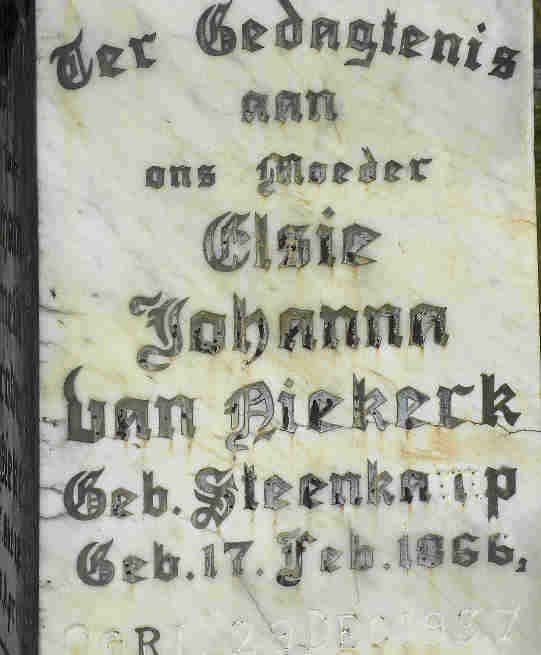 Ter Gedagtenis
aan
ons Moeder
Elsie
Johanna
van Niekerk
Geb. Steenkamp
Geb. 17. Feb. 1866,
29 DEC 1937